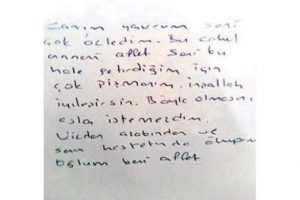 Canım yavrum seni
çok özledim. Bu cahil
anneni affet Seni bu
hale getirdiğim için
çok pişmanım. inşallah
iyileşirsin. Böyle olmasını
asla istemezdim.
Vicdan azabından ve
senin hasretinden ölüyorum
Oğlum beni affet